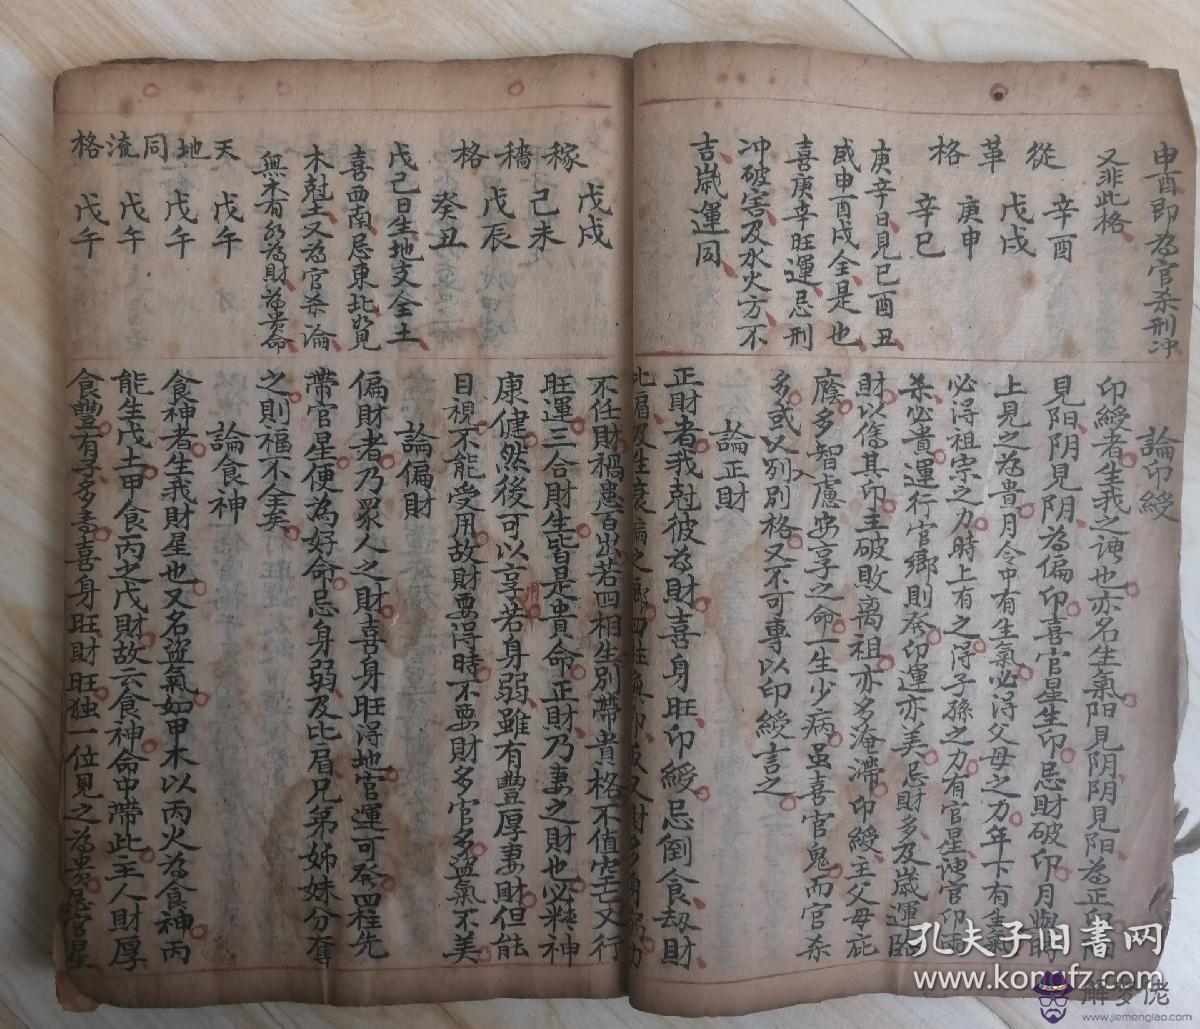 申酉即為官杀刑冲
又非此格
從革格
辛酉
戊戌
庚申
辛巳
庚辛日見巳酉丑
咸申酉戌全是也
喜庚辛旺運忌刑
冲破害及水火方不
吉歲運同
論印綬
印綬者生我之謂也亦名生氣阳見阴阴見阳為正印
見阳阴見阴為偏印喜官星生印忌財破印月
上見之為貴月令中有生氣必得父母之力年下有生氣
必得祖宗之力時上有之得子孫之力有官星謂官印
杀必貴運行官鄉則發印運亦美忌財多及歲運臨
財以傷其印主破敗离祖亦多淹滯印綬主父母庇
廕多智慮安享之命一生少病虽喜官鬼而官杀
多或入别格又不可專以印綬言之
論正財
正財者我尅彼為財喜身旺印綬忌倒食劫財
稼穡格
戊戌
己未
戊辰
癸丑
戊己日生地支全土
喜西南忌東北如見
木尅土又為官杀論
無木有水為財為貴命
天地同流格
戊午
戊午
戊午
戊午
不任財禍患百出若四相生别帶貴格不值空亡又行
旺運三合財生皆是貴命正財乃妻之財也必精神
康健然後可以享用若身弱雖有豐厚妻財但能
目視不能受用故財要得時不要財多官多盜氣不美
論偏財
偏財者乃眾人之財喜身旺得地官運可發四柱先
帶官星便為好命忌身弱及比肩兄弟姊妹分奪
之則福不全矣
論食神
食神者生我財星也又名盜氣如甲木以丙火為食神丙
能生戊土甲食丙之戊財故云食神命中帶此主人財厚
食豐有子多壽喜身旺財旺独一位見之為貴忌官星